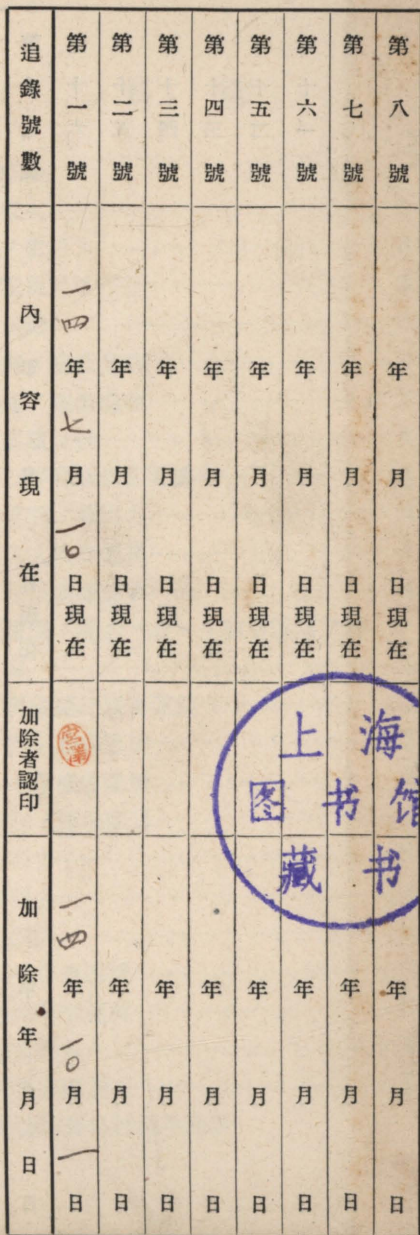 追錄號數 內容現在 加除者認印 加除年月日
第一號 一四年七月一〇日現在 宮澤 一四年一〇月一日
第二號 年月日現在 年月日
第三號 年月日現在 年月日
第四號 年月日現在 年月日
第五號 年月日現在 年月日
第六號 年月日現在 年月日
第七號 年月日現在 年月日
第八號 年月日現在 年月日
上海
图书馆
藏书